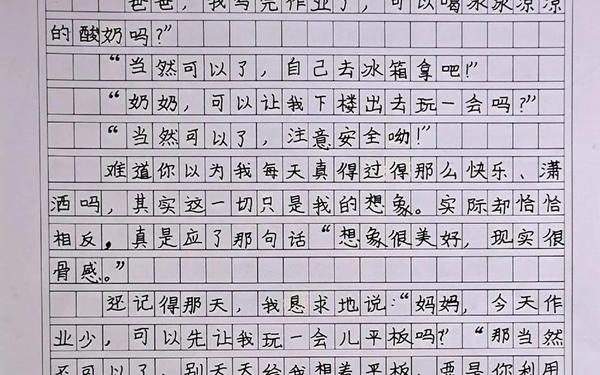 爸爸，我写完作业了，可以喝冰冰凉凉
的酸奶吗？”
“当然可以了，自己去冰箱拿吧！”
“奶奶，可以让我下楼出去玩一会吗？”
“当然可以了，注意安全呦！”
难道你以为我每天真得过得那么快乐、潇
洒吗，其实这一切只是我的想象。实际却恰恰
相反，真是应了那句话“想象很美好，现实很
骨感。”
还记得那天，我恳求地说：“妈妈，今天作
业少，可以先让我玩一会儿平板吗？”“那当然
不可以了，别天天给我想着平板，要是你利用